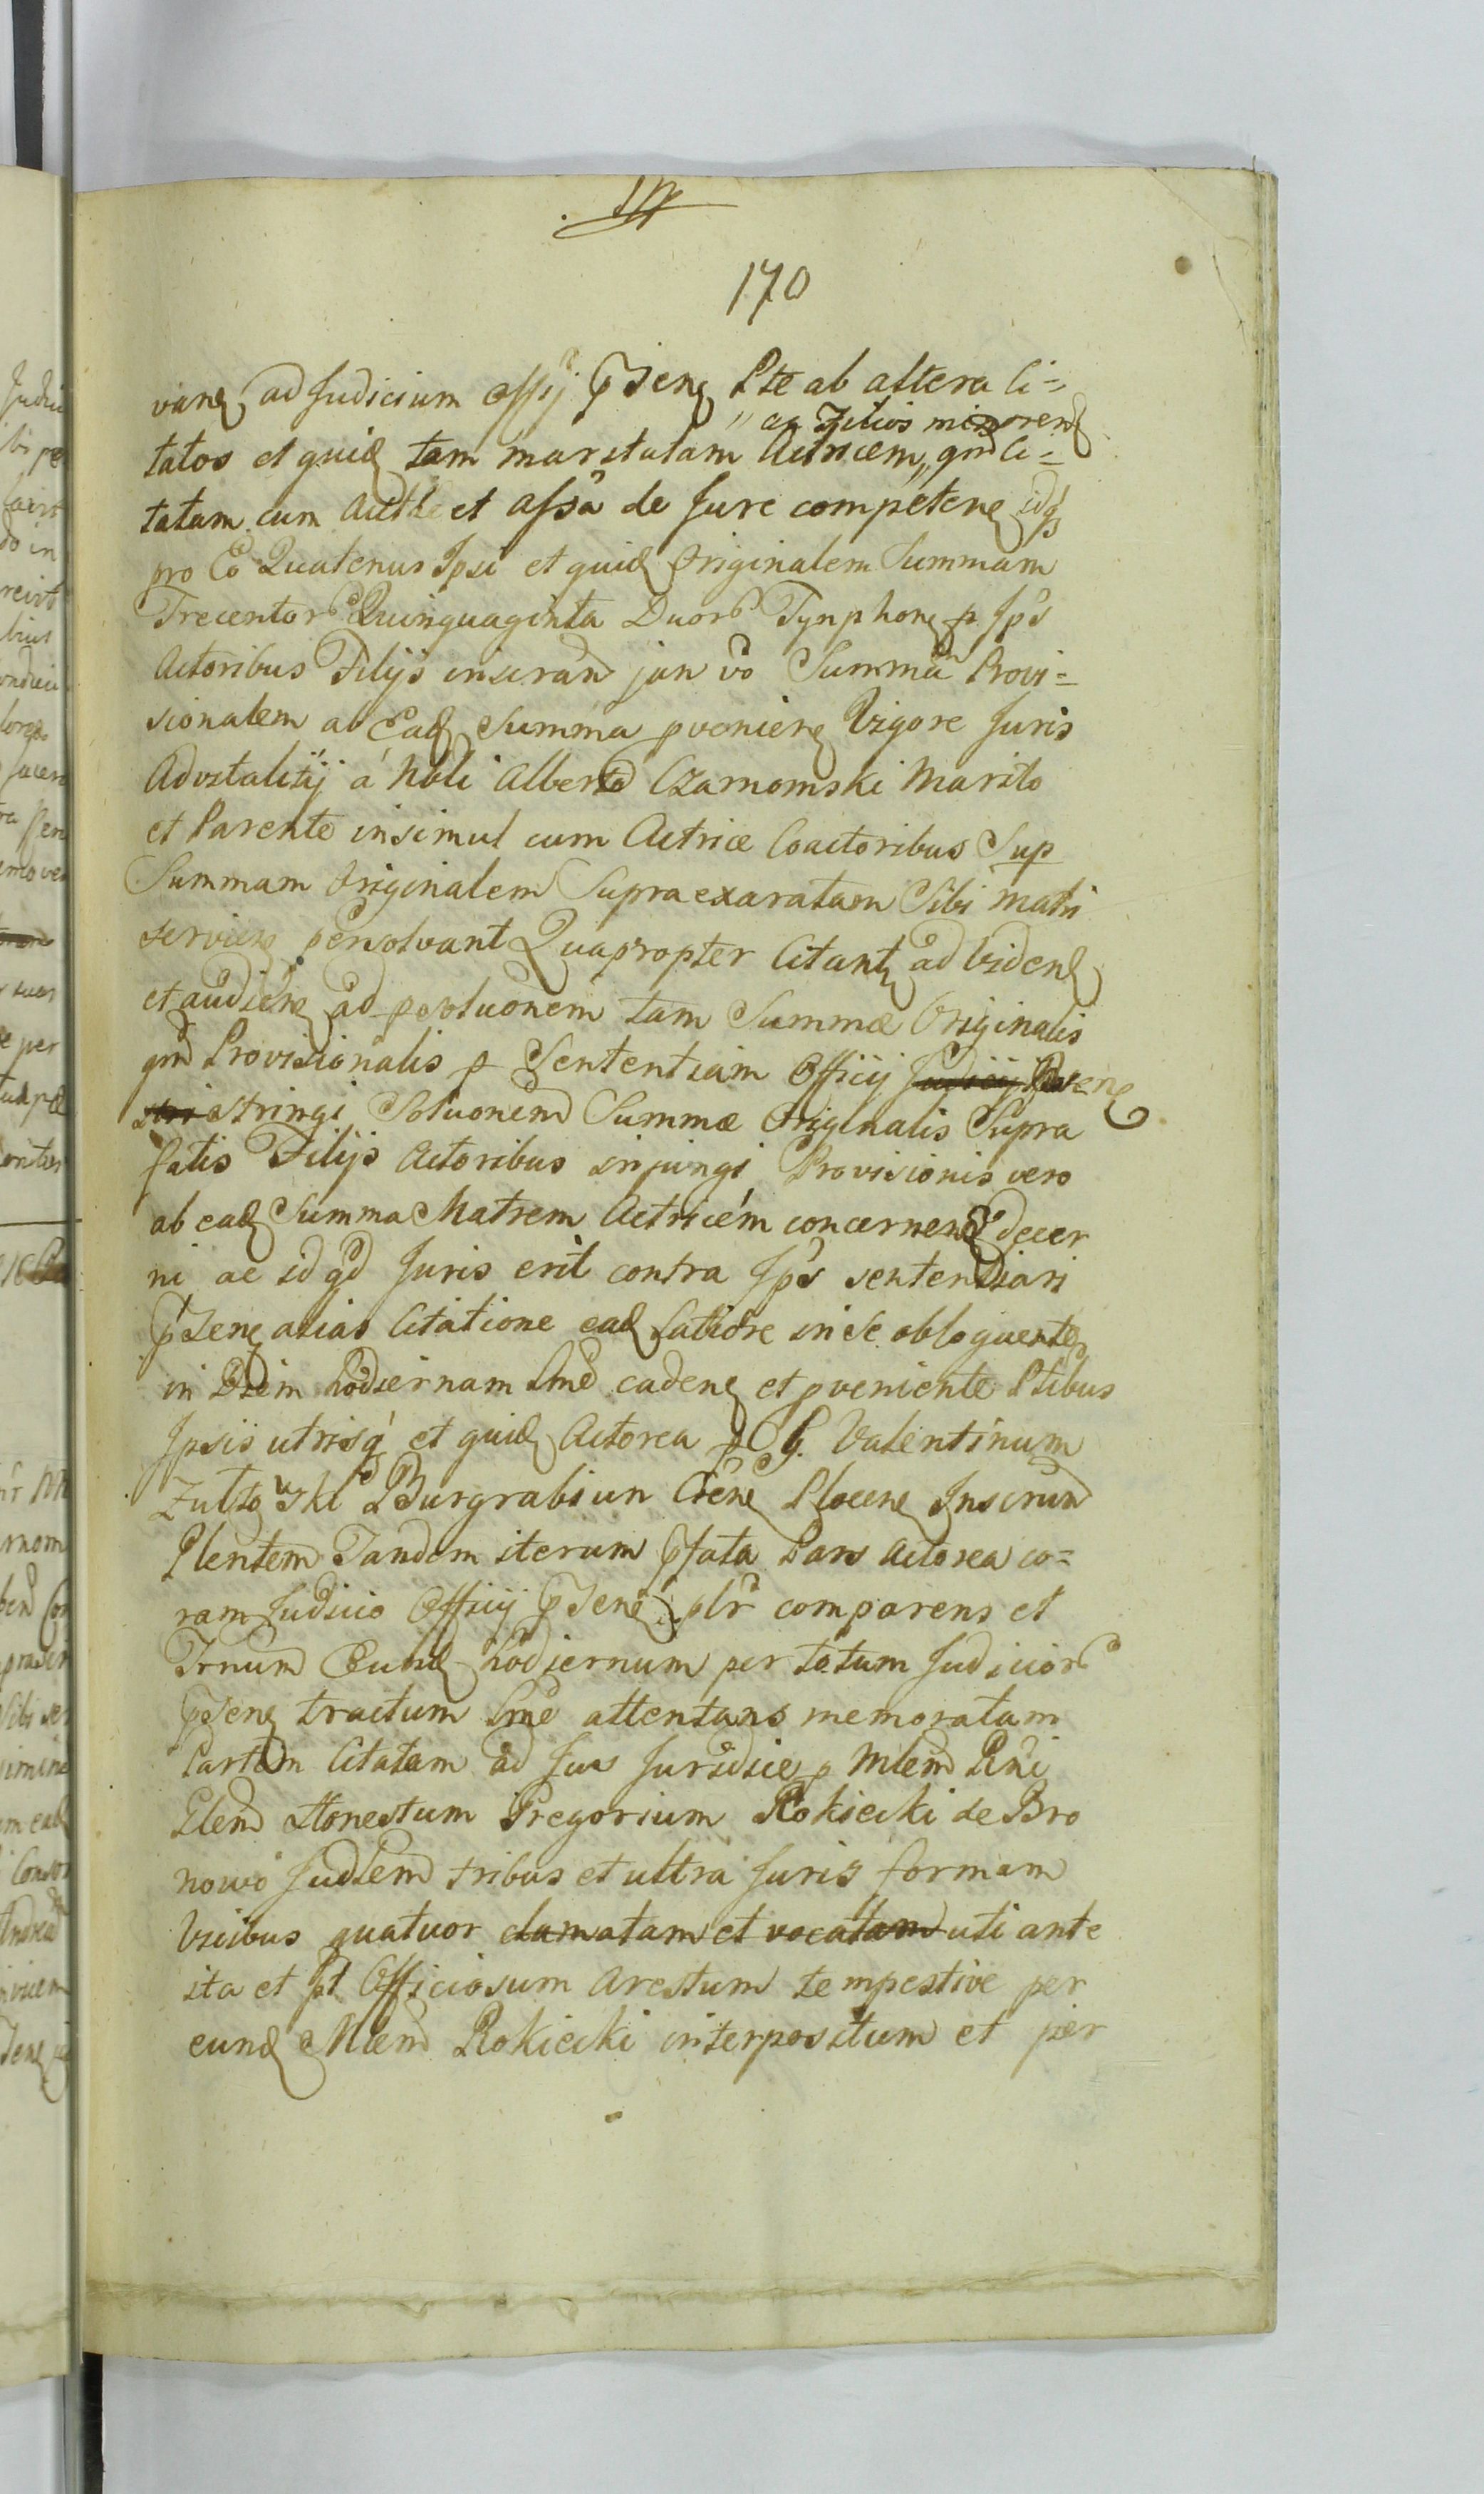 170
vane ad Judicium Offij pnsene Pte ab altera Ci=
„ ac Filios minoren
tatos et quid tam maritatam Actricem „ qm Ci=
tatam cum Actte et Assa de Jure competene idq
pro Eo Quatenus Ipsi et quid Originalem Summam
Trecentor Quinquaginta Duor Tynphone p Ips
Actoribus Filijs inseran jan vo Summam Provi=
sionalem ab Ead Summa pveniene Vigore Juris
Advitalitij á Nobli Alberto Czarnomski Marito
et Parente insimul cum Actrice Coactoribus Sup
Summam Originalem Supra exaratam Sibi Matri
serviene persolvant Quapropter Citant ad Vidend
et audiend ad persoluonem tam Summæ Originalis
qm Provisionalis p Sententiam Officij Judicij Psene
stri astringi Soluonem Summæ Originalis Supra
fatis Filijs Actoribus injungi Provisionis vero
ab ead Summa Matrem Actricem concernend decer
ni ac id qd Juris erit contra Ips sententiari
pnsene alias Citatione ead latiore in se obloquente
in Diem hodiernam Lme cadene et pveniente Ptibus
Ipsis utrisq et quid Actorea p G. Valentinum
Zultowski Burgrabium Crene Plocene Inscrum
Plentem Tandem iterum pfata Pars Actorea co=
ram Judicio Officij pnsene plr comparens et
Trnum Eund hodiernum per totum Judicior
pnsene tractum Lme attentans memoratam
Partem Citatam ad Jus Juridice p Mlem Rni
Plem Honestum Gregorium Rokicki de Bro
nowo Judlem tribus et ultra Juris formam
Vicibus quatuor clamatam et vocatam uti ante
ita et pt Officiosum Arestum tempestive per
eund Mlem Rokicki interpositum et per